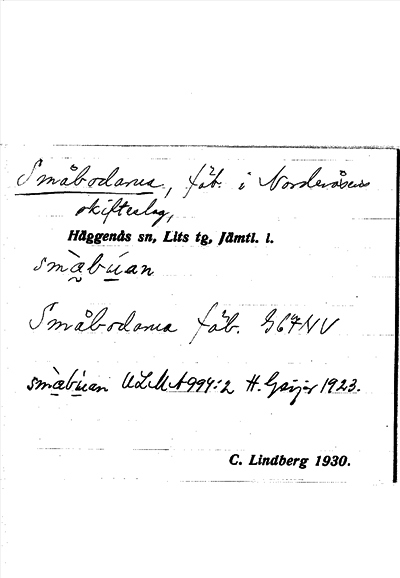 Småbodarna, fäb. i Nordevåsens
skifteslag,
Häggenås sn, Lits tg, Jämtl. l.
smæ̀bú̱an
Småbodarna fäb. G67NV
smæ̀bú̱an ULMA 994:2 H. Geijer 1923.
C. Lindberg 1930.